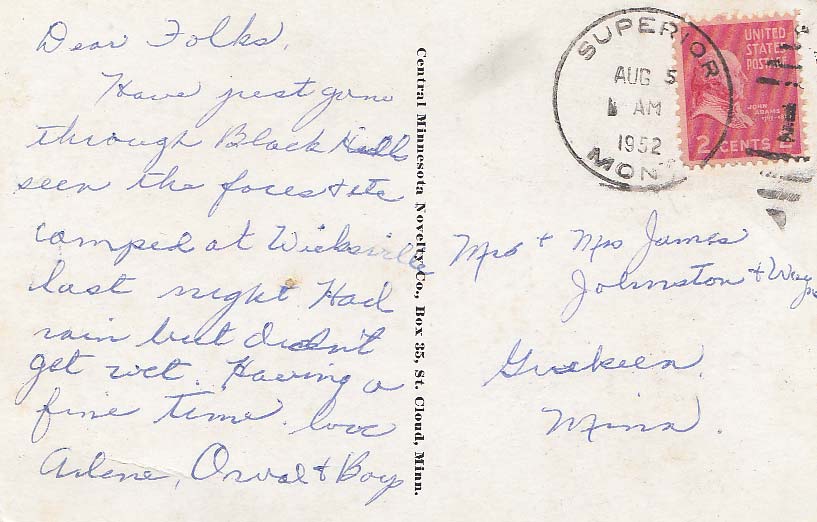 Dear Folks,
Have just gone
through Black Hills
seen the faces & etc
camped at Wicksville
last night Had
rain but didn't
get wet. Having a
fine time. love
Arlene, Orval & Boys
Central Minnesota Novelty Co., Box 35, St. Cloud, Minn.
SUPERIOR
AUG 5
AM
1952
MONT
UNITED
STATES
POSTAGE
JOHN
ADAMS
2 CENTS 2
Mrs + Mrs James
Johnston +
Minn.